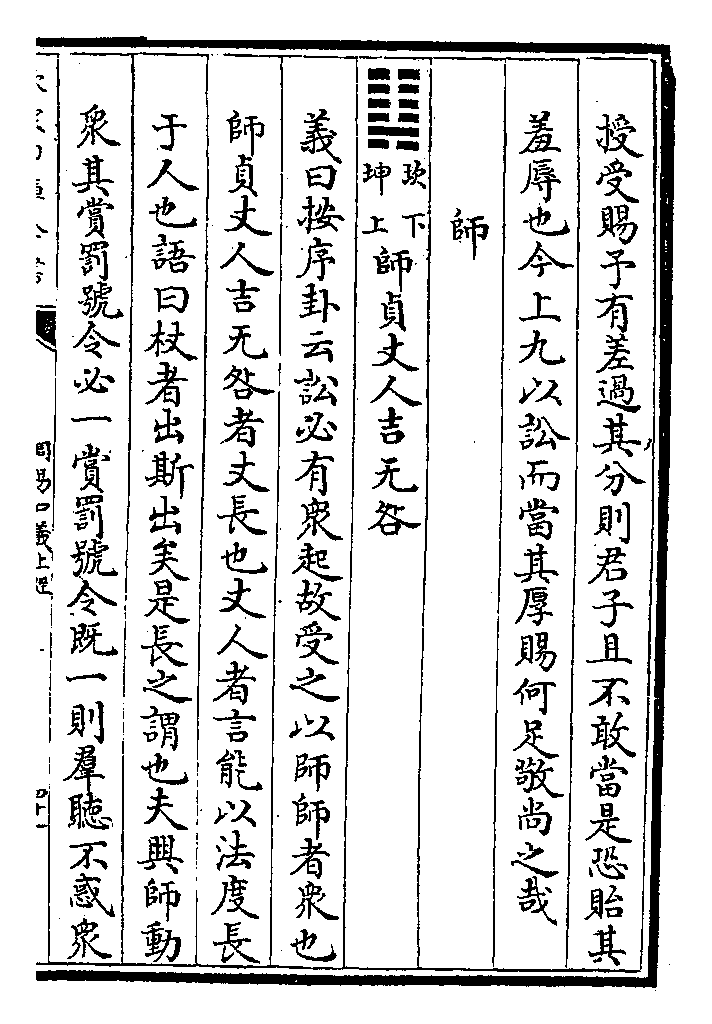 授受賜予有差過其分則君子且不敢當是恐貽其
羞辱也今上九以訟而當其厚賜何足敬尚之哉
師
坎下
坤上
師貞丈人吉无咎
義曰按序卦云訟必有衆起故受之以師師者衆也
師貞丈人吉无咎者丈長也丈人者言能以法度長
于人也語曰杖者出斯出矣是長之謂也夫興師動
衆其賞罰號令必一賞罰號令既一則羣聽不惑衆
周易口義上經